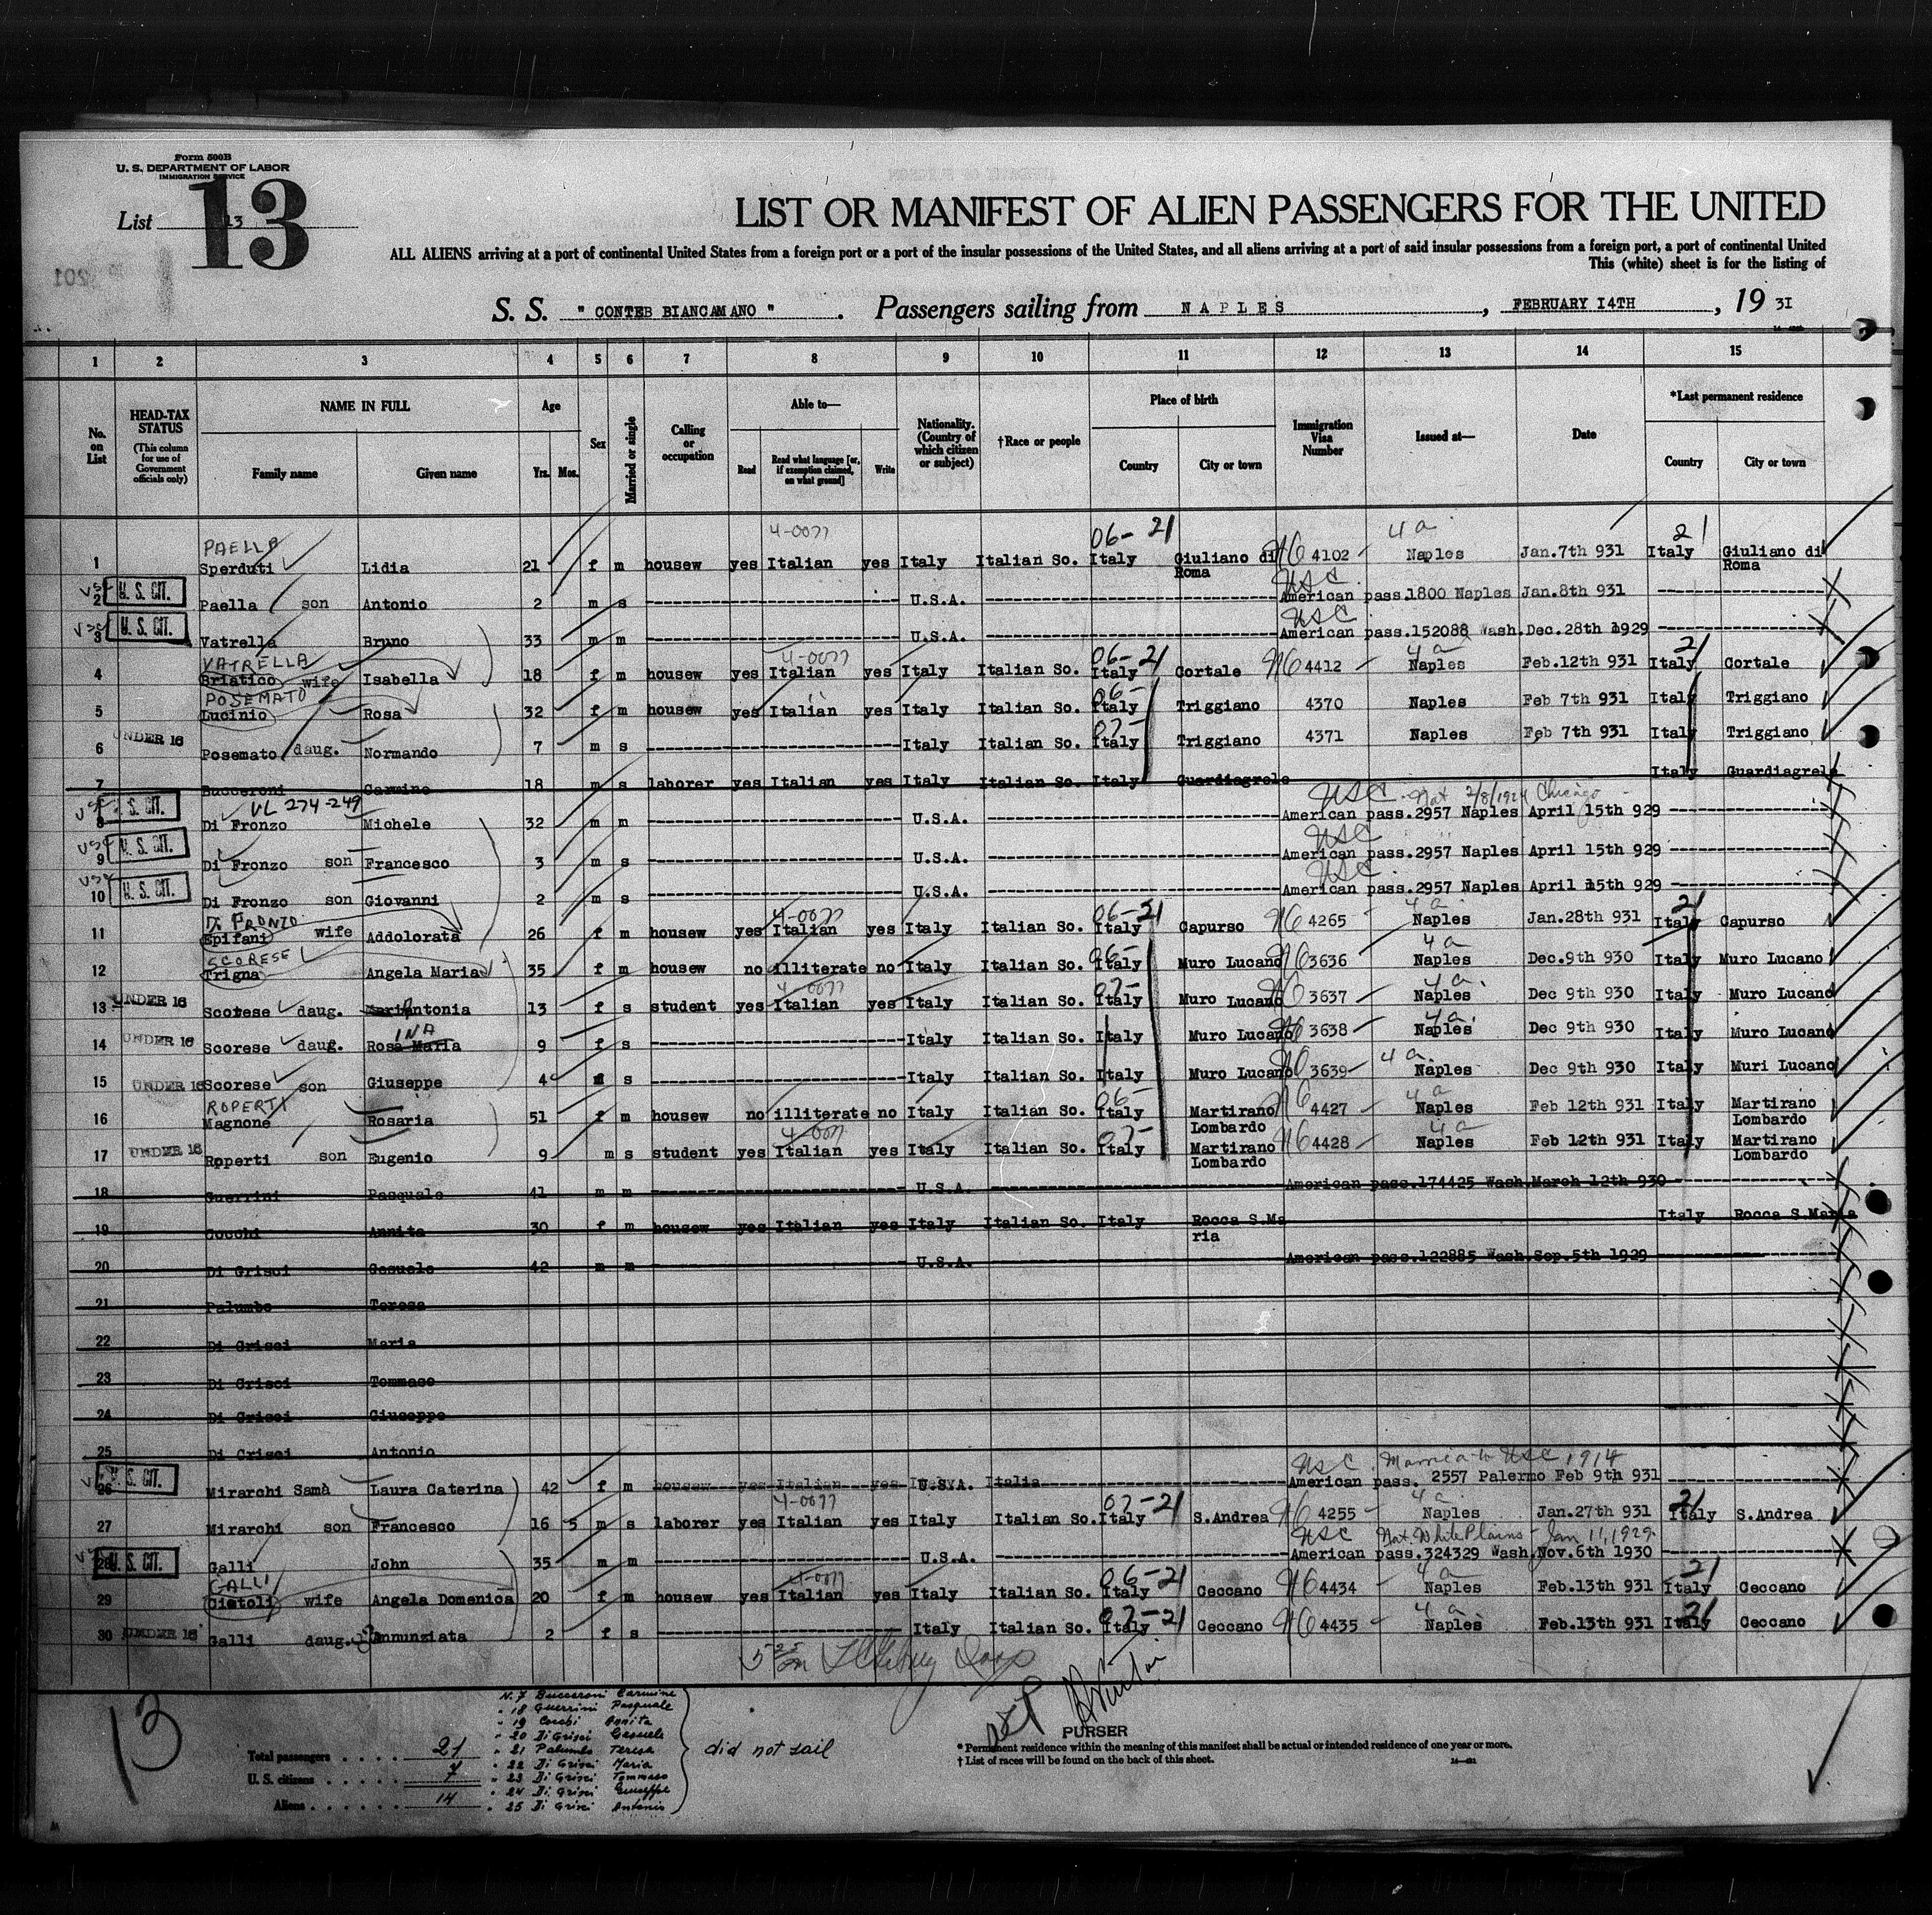 Form 500B
U. S. DEPARTMENT OF LABOR
IMMIGRATION SERVICE
List 13
13
LIST OR MANIFEST OF ALIEN PASSENGERS FOR THE UNITED
ALL ALIENS arriving at a port of continental United States from a foreign port or a port of the insular possessions of the United States, and all aliens arriving at a port of said insular possessions from a foreign port, a port of continental United
This (white) sheet is for the listing of
S. S. " CONTEB BIANCAMANO " . Passengers sailing from NAPLES , FEBRUARY 14TH , 19 31
1 2 3 4 5 6 7 8 9 10 11 12 13 14 15
No. on List
HEAD-TAX STATUS (This column for use of Government officials only)
NAME IN FULL
Family name Given name
Age
Yrs. Mos.
Sex
Married or single
Calling or occupation
Able to—
Read Read what language [or, if exemption claimed, on what ground] Write
Nationality. (Country of which citizen or subject)
†Race or people
Place of birth
Country City or town
Immigration Visa Number
Issued at—
Date
*Last permanent residence
Country City or town
PAELLA 4-0077 06-21 4a 21
1 Sperduti Lidia 21 f m housew yes Italian yes Italy Italian So. Italy Giuliano di Roma 4102 Naples Jan.7th 931 Italy Giuliano di Roma
USC
2 U. S. CIT. Paella son Antonio 2 m s U.S.A. American pass.1800 Naples Jan.8th 931
USC
3 U. S. CIT. Vatrella Bruno 33 m m U.S.A. American pass.152088 Wash.Dec.28th 1929
VATRELLA 4-0077 06-21 4a 21
4 Briatico wife Isabella 18 f m housew yes Italian yes Italy Italian So. Italy Cortale 4412 Naples Feb.12th 931 Italy Cortale
POSEMATO 06-
5 Lucinio Rosa 32 f m housew yes Italian yes Italy Italian So. Italy Triggiano 4370 Naples Feb 7th 931 Italy Triggiano
07-
6 UNDER 16 Posemato daug. Normando 7 m s Italy Italian So. Italy Triggiano 4371 Naples Feb 7th 931 Italy Triggiano
7 Bucceroni Carmine 18 m s laborer yes Italian yes Italy Italian So. Italy Guardiagrele Italy Guardiagrele
VL 274-249 USC Nat 2/8/1924 Chicago
8 U. S. CIT. Di Fronzo Michele 32 m m U.S.A. American pass.2957 Naples April 15th 929
USC
9 U. S. CIT. Di Fronzo son Francesco 3 m s U.S.A. American pass.2957 Naples April 15th 929
USC
10 U. S. CIT. Di Fronzo son Giovanni 2 m s U.S.A. American pass.2957 Naples April 15th 929
Di FRONZO 4-0077 06-21 4a 21
11 Epifani wife Addolorata 26 f m housew yes Italian yes Italy Italian So. Italy Capurso 4265 Naples Jan.28th 931 Italy Capurso
SCORESE 06- 4a
12 Trigna Angela Maria 35 f m housew no illiterate no Italy Italian So. Italy Muro Lucano 3636 Naples Dec.9th 930 Italy Muro Lucano
4-0077 07- 4a
13 UNDER 16 Scorese daug. MariAntonia 13 f s student yes Italian yes Italy Italian So. Italy Muro Lucano 3637 Naples Dec 9th 930 Italy Muro Lucano
INA 4a
14 UNDER 16 Scorese daug. Rosa Maria 9 f s Italy Italian So. Italy Muro Lucano 3638 Naples Dec 9th 930 Italy Muro Lucano
4a
15 UNDER 16 Scorese son Giuseppe 4 m s Italy Italian So. Italy Muro Lucano 3639 Naples Dec 9th 930 Italy Muri Lucano
ROPERTI 06- 4a
16 Magnone Rosaria 51 f m housew no illiterate no Italy Italian So. Italy Martirano Lombardo 4427 Naples Feb 12th 931 Italy Martirano Lombardo
4-0077 07- 4a
17 UNDER 16 Roperti son Eugenio 9 m s student yes Italian yes Italy Italian So. Italy Martirano Lombardo 4428 Naples Feb 12th 931 Italy Martirano Lombardo
18 Guerrini Pasquale 41 m m U.S.A. American pass.174425 Wash.March 12th 930
19 Cocchi Annita 30 f m housew yes Italian yes Italy Italian So. Italy Rocca S.Maria Italy Rocca S.Maria
20 Di Grisci Gesuele 42 m m U.S.A. American pass.122885 Wash.Sep.5th 1929
21 Palumbo Teresa
22 Di Grisci Maria
23 Di Grisci Tommaso
24 Di Grisci Giuseppe
25 Di Grisci Antonio
USC Married to USC 1914
26 U. S. CIT. Mirarchi Samà Laura Caterina 42 f m housew yes Italian yes U.S.A. Italia American pass. 2557 Palermo Feb 9th 931
4-0077 07-21 4a 21
27 Mirarchi son Francesco 16 5 m s laborer yes Italian yes Italy Italian So. Italy S.Andrea 4255 Naples Jan.27th 931 Italy S.Andrea
USC Nat. White Plains - Jan 11, 1929
28 U. S. CIT. Galli John 35 m m U.S.A. American pass.324329 Wash.Nov.6th 1930
GALLI 4-0077 06-21 4a 21
29 Cietoli wife Angela Domenica 20 f m housew yes Italian yes Italy Italian So. Italy Ceccano 4434 Naples Feb.13th 931 Italy Ceccano
07-21 4a 21
30 UNDER 16 Galli daug. Annunziata 2 f s Italy Italian So. Italy Ceccano 4435 Naples Feb.13th 931 Italy Ceccano
13
N. 7 Bucceroni Carmine
" 18 Guerrini Pasquale
" 19 Cocchi Annita
" 20 Di Grisci Gesuele
" 21 Palumbo Teresa
" 22 Di Grisci Maria
" 23 Di Grisci Tommaso
" 24 Di Grisci Giuseppe
" 25 Di Grisci Antonio
did not sail
Total passengers . . . . 21
U. S. citizens . . . . . 7
Aliens . . . . . . 14
PURSER
* Permanent residence within the meaning of this manifest shall be actual or intended residence of one year or more.
† List of races will be found on the back of this sheet.